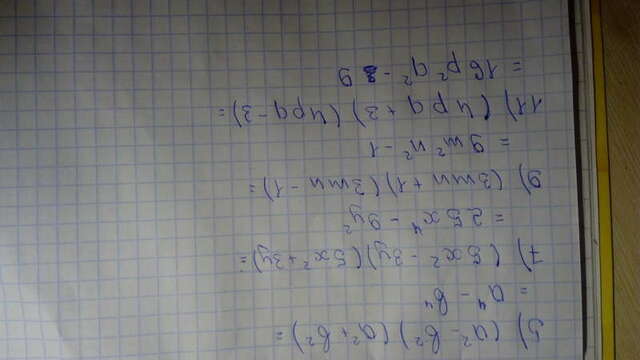 5) (a² - b²)(a² + b²) =
= a⁴ - b⁴
7) (5x² - 3y)(5x² + 3y) =
= 25x⁴ - 9y²
9) (3mn + 1)(3mn - 1) =
= 9m²n² - 1
11) (4pq + 3)(4pq - 3) =
= 16p²q² - 9